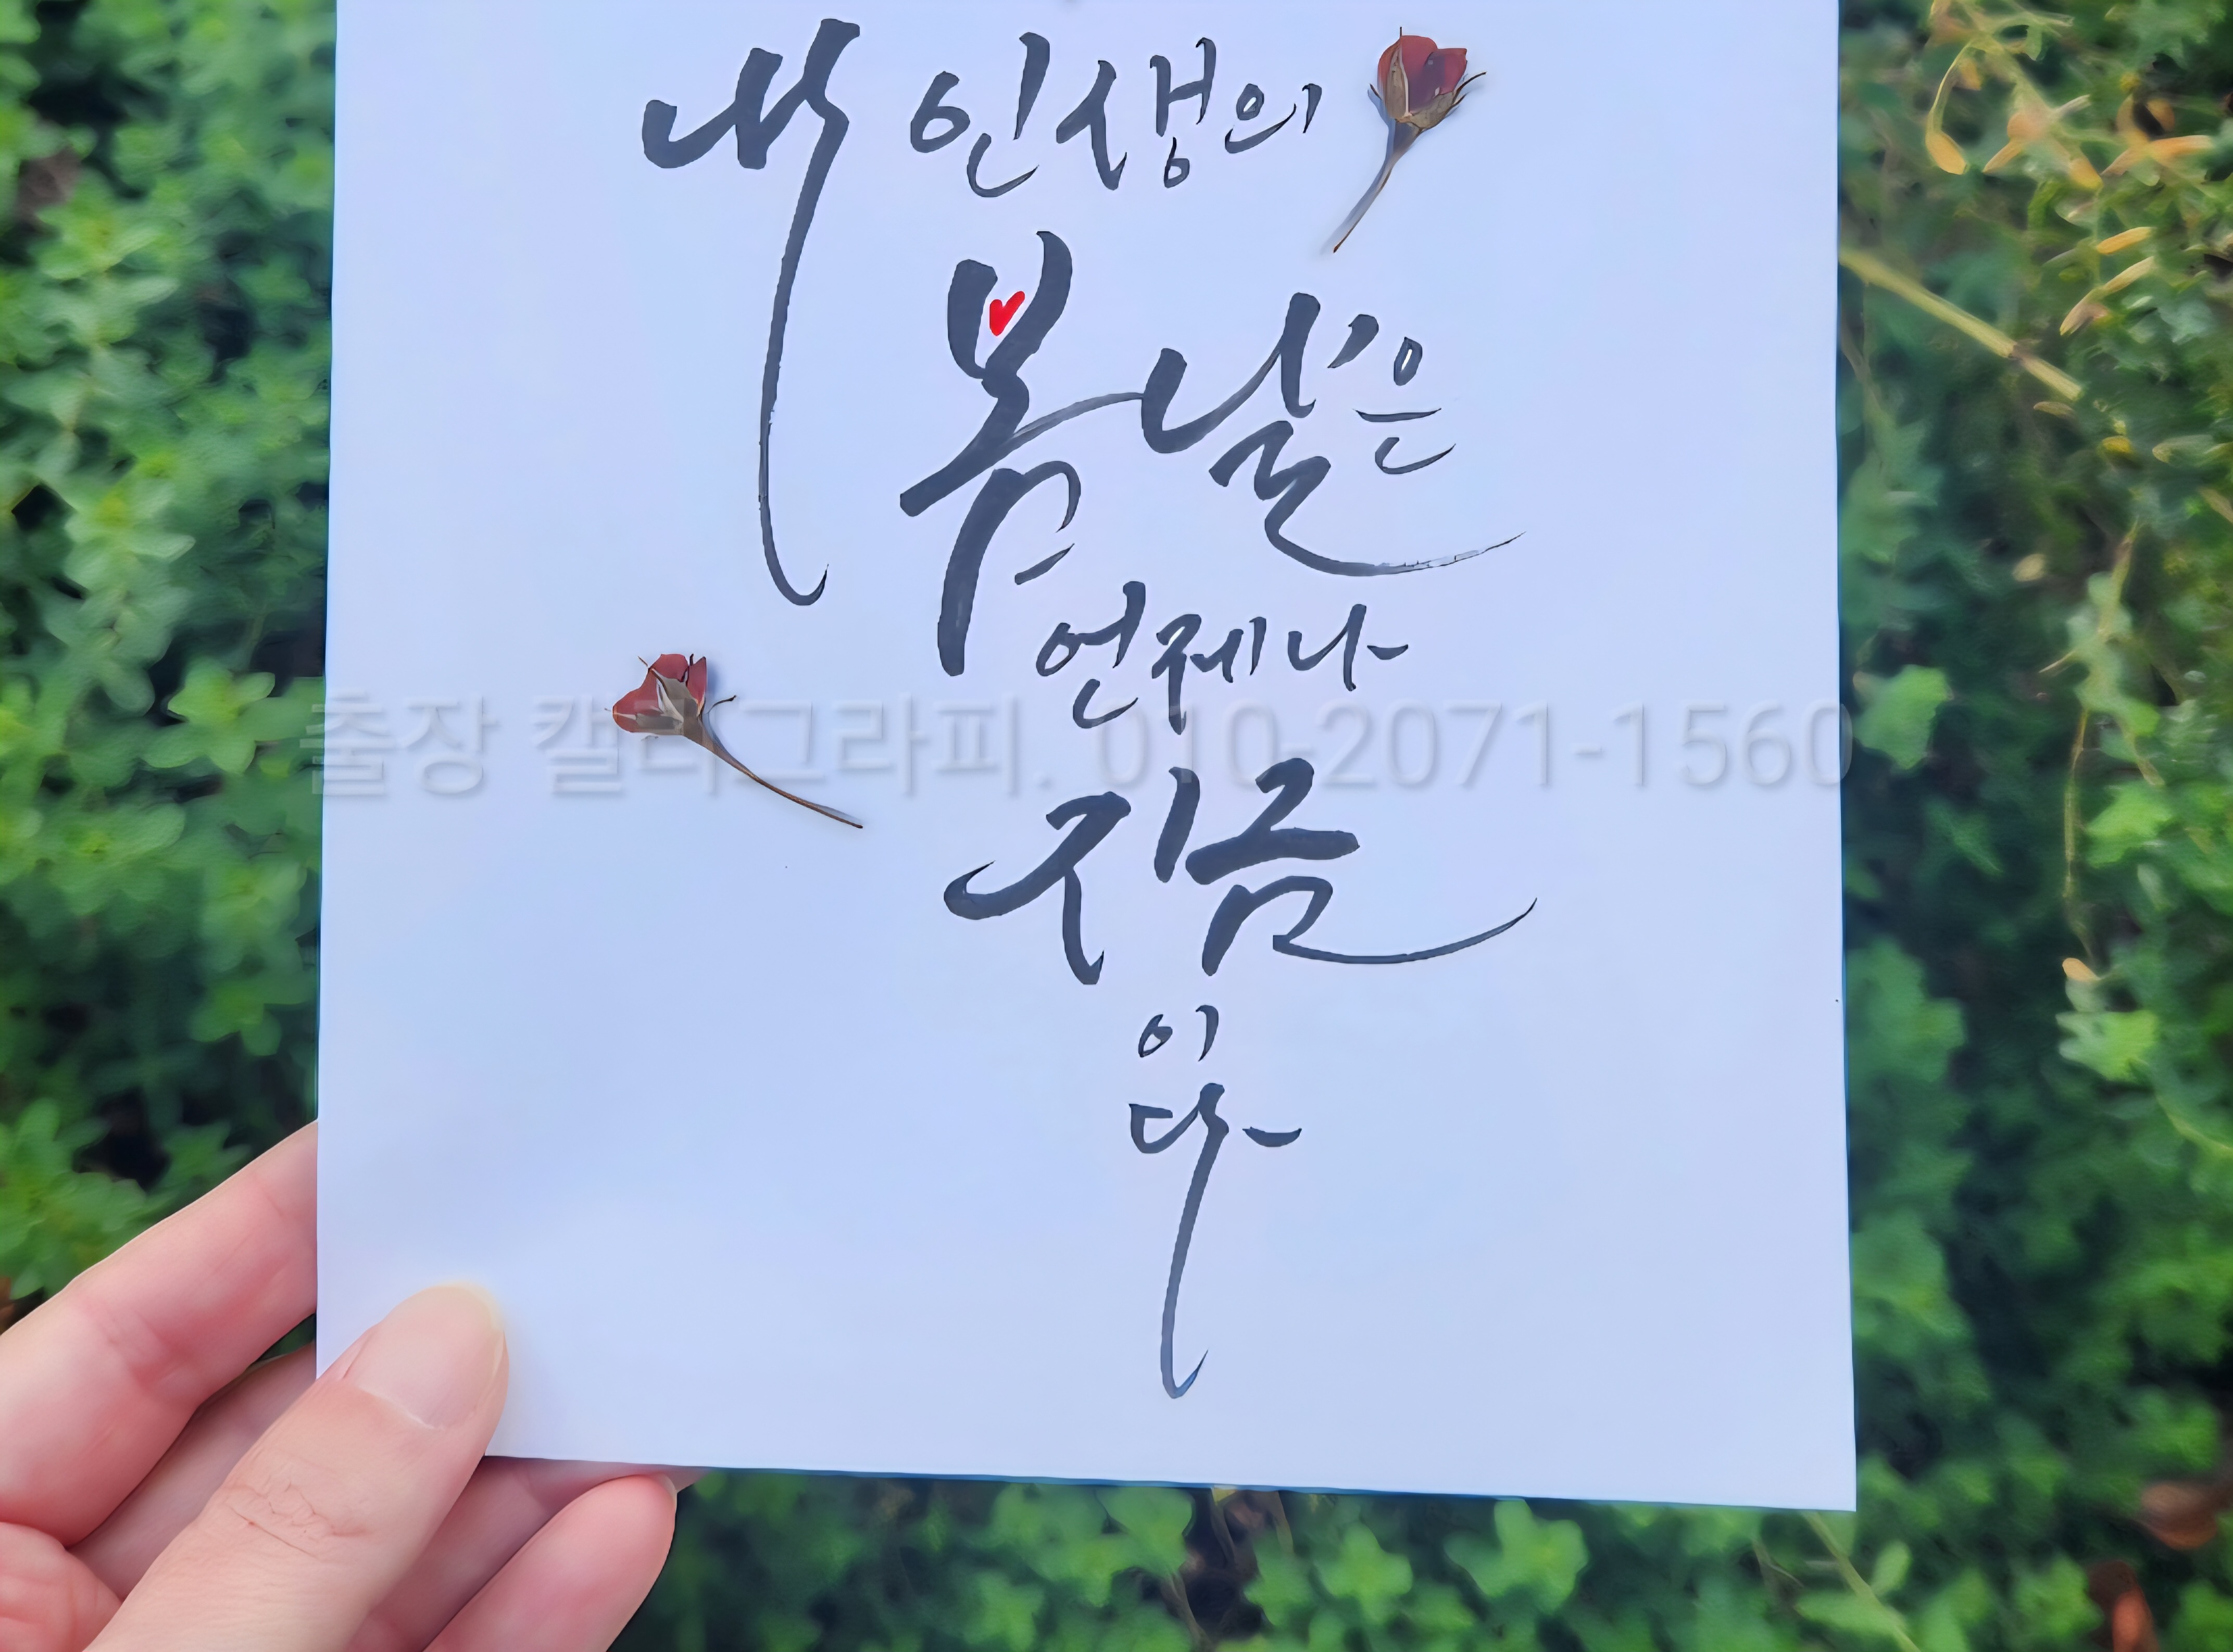 내 인생의
봄날은
언제나
출장 캘리그라피. 010-2071-1560
지금
이
다